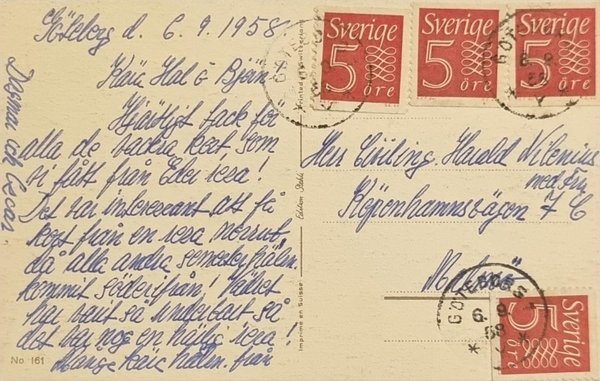 Göteborg d. 6.9.1958
Käre Hal o Björn!
Hjärtligt tack för
alla de vackra kort som
vi fått från Eder resa!
Det var intressant att få
kort från en resa norrut,
då alla andra semesterhälsn.
kommit söderifrån! Vädret
har varit så underbart så
det var nog en härlig resa!
Många kära hälsn. från
Dagmar och Oscar
No 161
Printed in Switzerland
Edition Stehli
Imprimé en Suisse
Sverige
5
öre
Sverige
5
öre
Sverige
5
öre
GÖTEBORG 1
6. 9.
58
Herr Civiling. Harald Vilenius
med fru
Köpenhamnsvägen 7 C
Malmö
GÖTEBORG 1
6. 9.
58
Sverige
5
öre